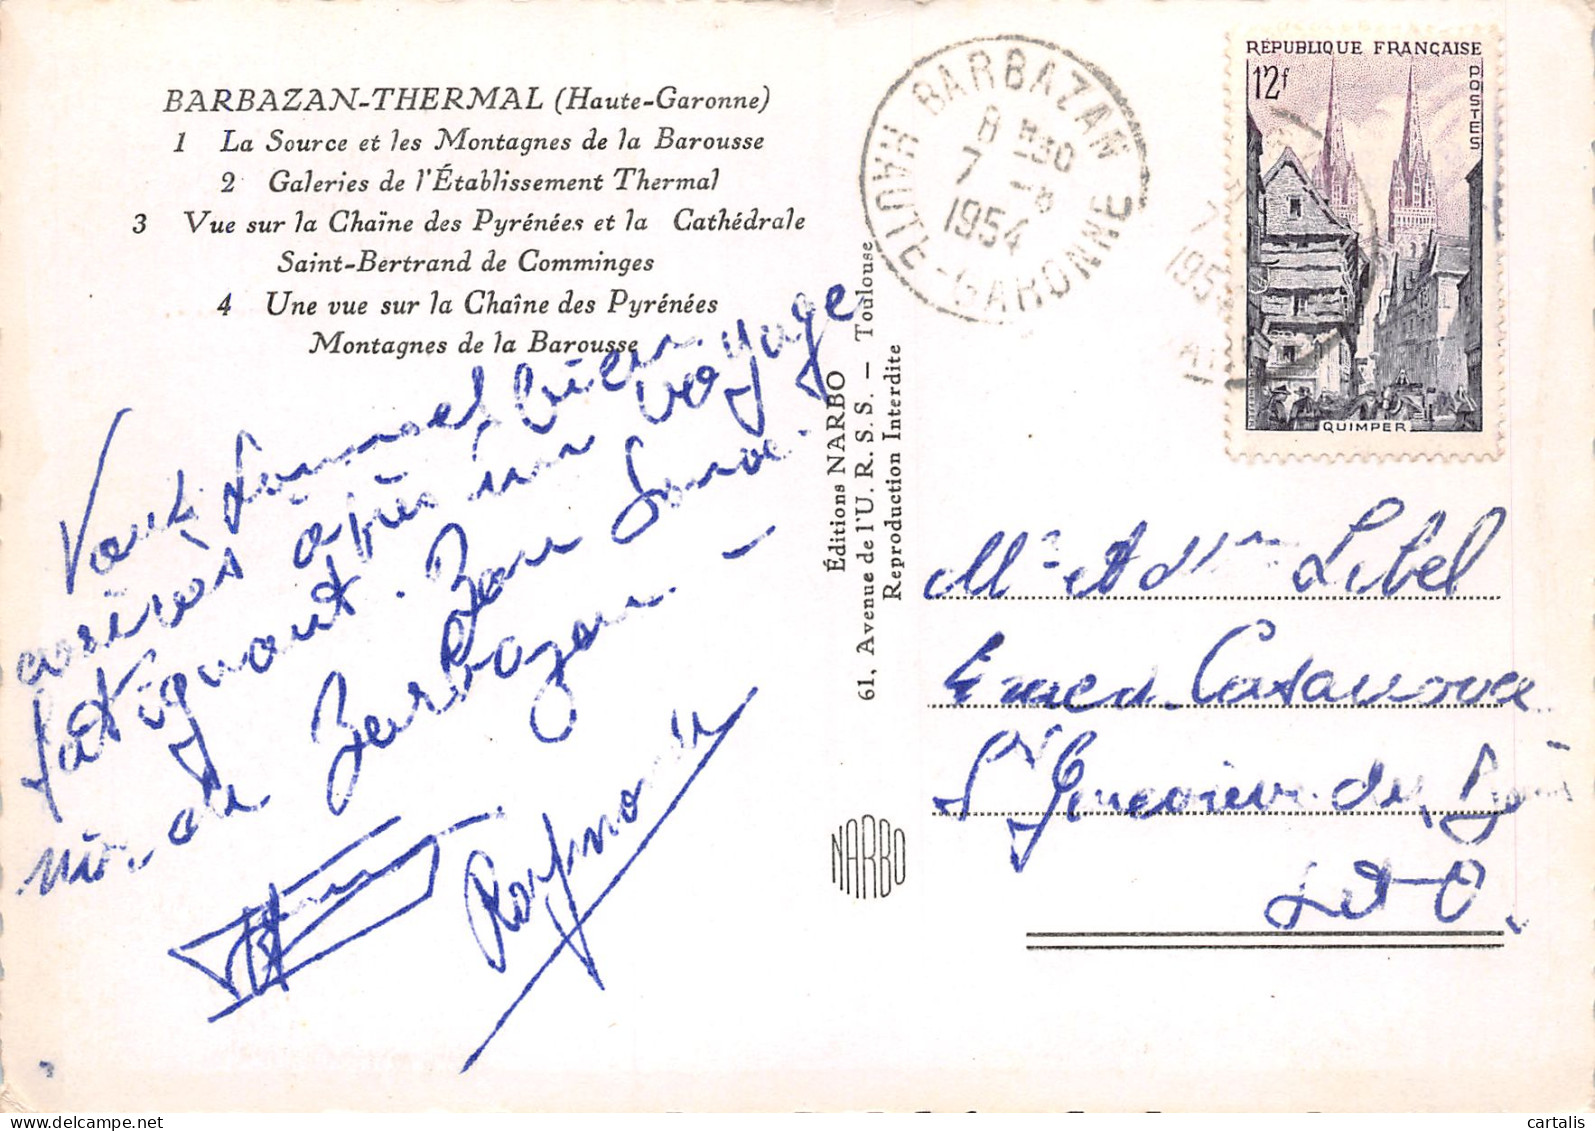 BARBAZAN-THERMAL (Haute-Garonne)
1 La Source et les Montagnes de la Barousse
2 Galeries de l'Établissement Thermal
3 Vue sur la Chaïne des Pyrénées et la Cathédrale
Saint-Bertrand de Comminges
4 Une vue sur la Chaîne des Pyrénées
Montagnes de la Barousse
bien
arrivés après un voyage
fatiguant. Bon
de Barbazan. -
Raymonde
Éditions NARBO
61, Avenue de l'U. R. S. S. — Toulouse
Reproduction Interdite
NARBO
BARBAZAN
8 H30
7 -8
1954
HAUTE-GARONNE
RÉPUBLIQUE FRANÇAISE
12f
POSTES
QUIMPER
Mr et Mme Lebel
Casanova
Ste Geneviève des Bois
S et O.
cartalis